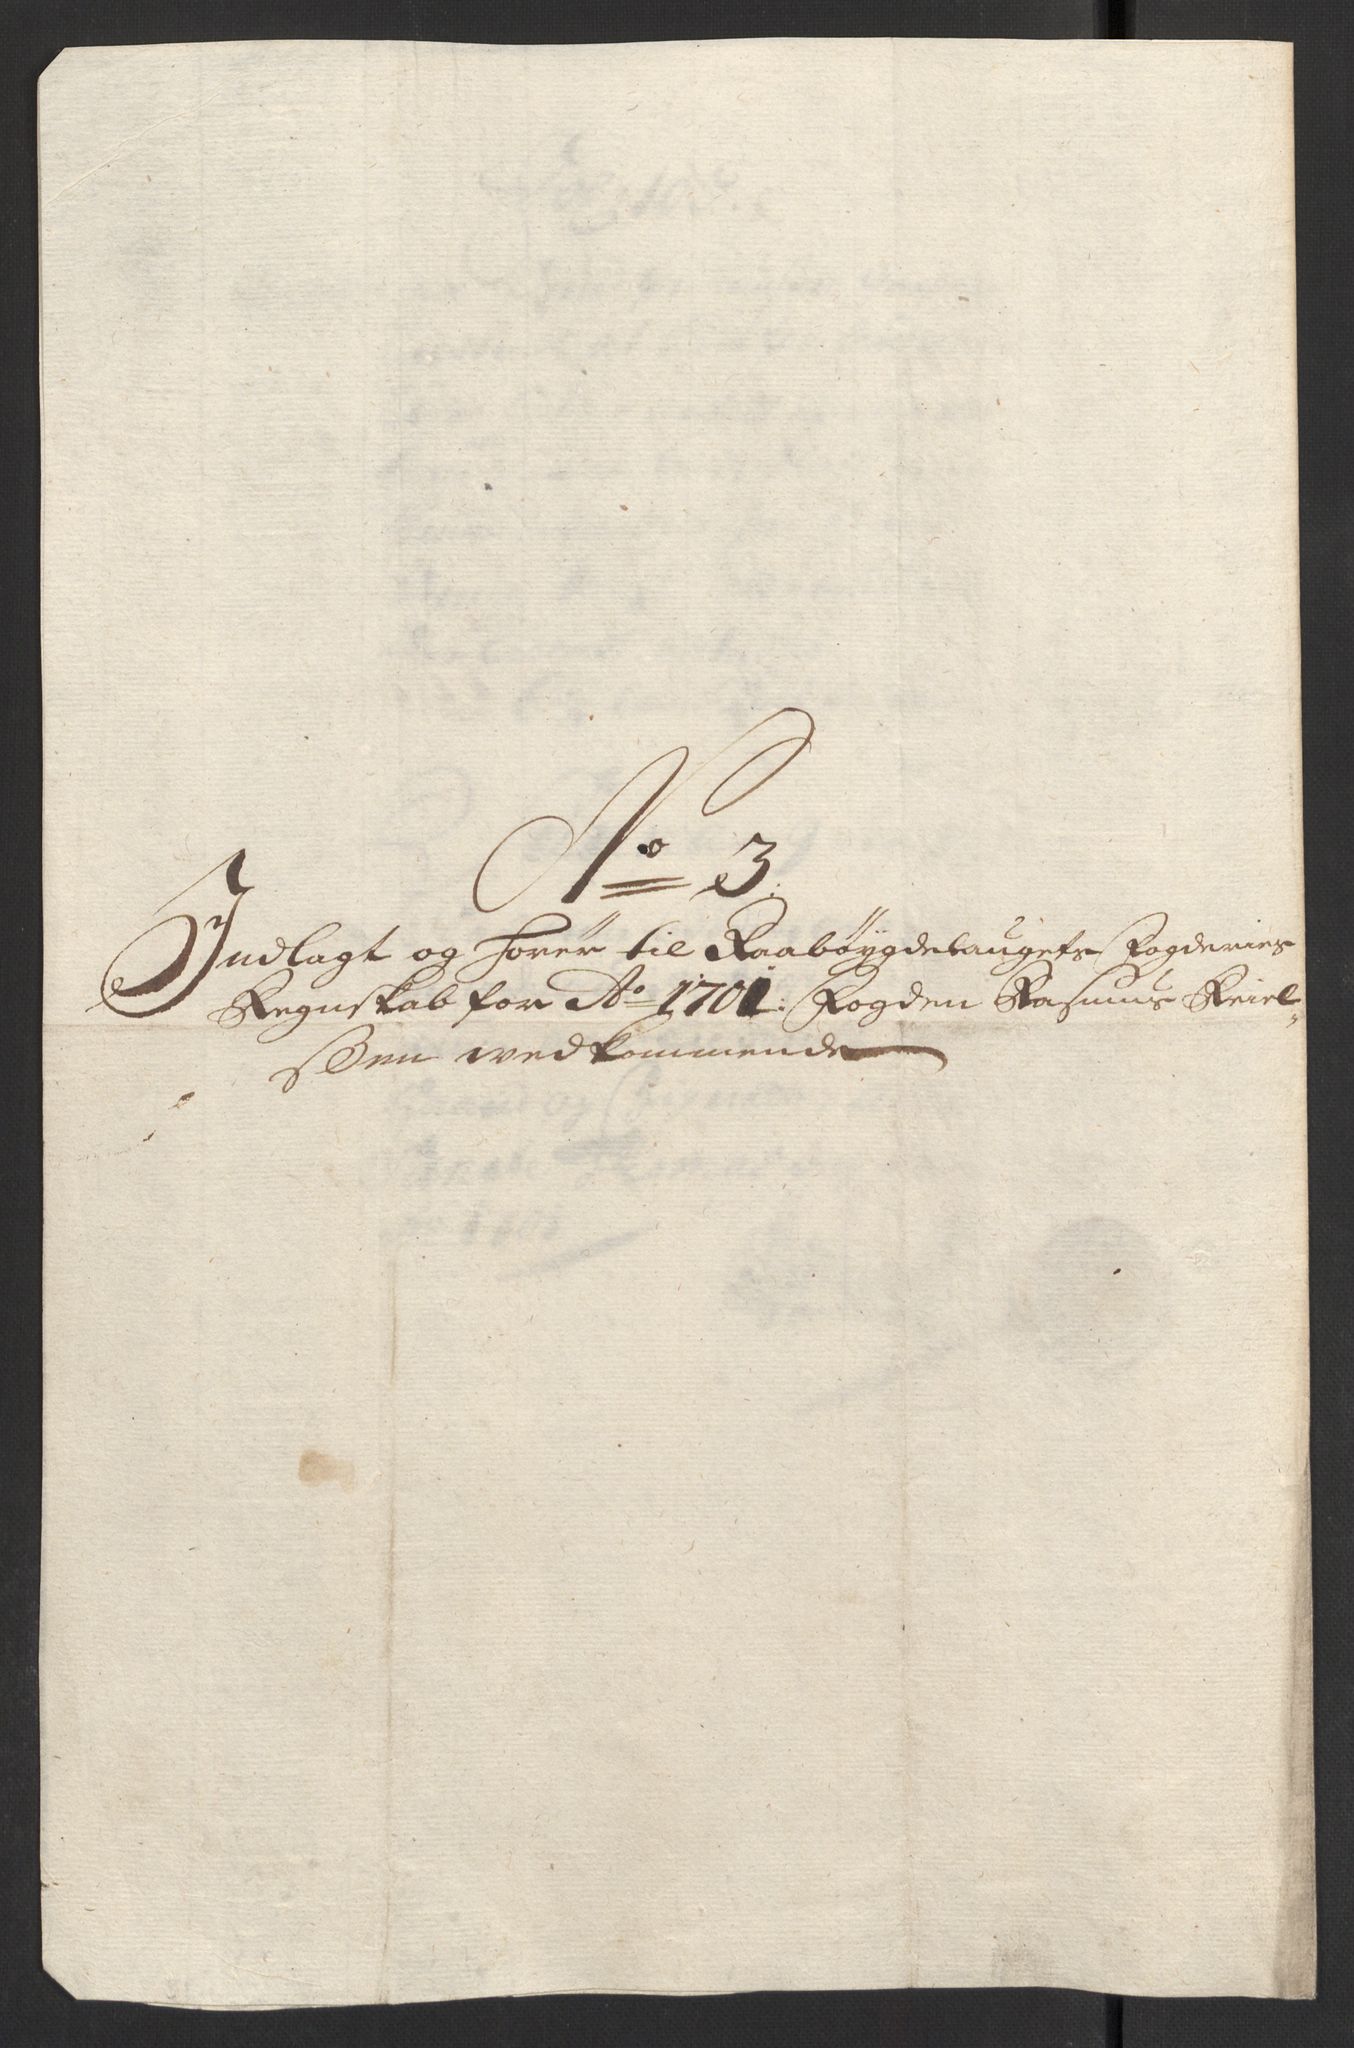 No 3.
Indlagt og hører til Raabøygdelaugets Fogderies
Regnskab for Ao 1701: Fogden Rasmus Keiel-
søen wedkommende